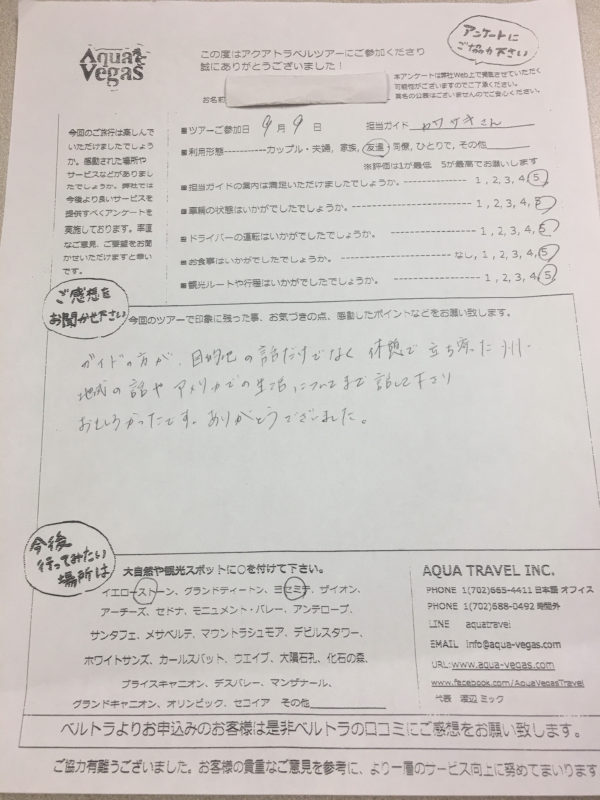 Aqua
Vegas
この度はアクアトラベルツアーにご参加くださり
誠にありがとうございました！
アンケートに
ご協力下さい
本アンケートは弊社Web上で掲載させていただく
可能性がございますのでご了承ください。
実名の公表はございませんのでご安心ください。
お名前
今回のご旅行は楽しんで
いただけましたでしょう
か。感動された場所や
サービスなどがありまし
たでしょうか。弊社では
今後より良いサービスを
提供すべくアンケートを
実施しております。率直
なご意見、ご要望をお聞
かせいただけますと幸い
です。
■ツアーご参加日 9月9日 担当ガイド カワサキさん
■利用形態-----------カップル・夫婦, 家族, 友達, 同僚, ひとりで, その他
※評価は1が最低 5が最高でお願いします
■担当ガイドの案内は満足いただけましたでしょうか。 ---------------- 1, 2, 3, 4, 5
■車輌の状態はいかがでしたでしょうか。 ---------------- 1, 2, 3, 4, 5
■ドライバーの運転はいかがでしたでしょうか。 ---------------- 1, 2, 3, 4, 5
■お食事はいかがでしたでしょうか。 ---------------- なし, 1, 2, 3, 4, 5
■観光ルートや行程はいかがでしたでしょうか。 ---------------- 1, 2, 3, 4, 5
ご感想を
お聞かせ下さい
今回のツアーで印象に残った事、お気づきの点、感動したポイントなどをお願い致します。
ガイドの方が、目的地の話だけでなく 休憩で立ち寄った州・
地域の話や アメリカでの生活についてまで 話して下さり
おもしろかったです。ありがとうございました。
今後
行ってみたい
場所は
大自然や観光スポットに○を付けて下さい。
イエローストーン、グランドティートン、ヨセミテ、ザイオン、
アーチーズ、セドナ、モニュメント・バレー、アンテロープ、
サンタフェ、メサベルテ、マウントラシュモア、デビルスタワー、
ホワイトサンズ、カールスバット、ウエイブ、大隕石孔、化石の森、
ブライスキャニオン、デスバレー、マンザナール、
グランドキャニオン、オリンピック、セコイア その他
AQUA TRAVEL INC.
PHONE 1(702)665-4411 日本語 オフィス
PHONE 1(702)688-0492 時間外
LINE aquatravel
EMAIL info@aqua-vegas.com
URL:www.aqua-vegas.com
www.facebook.com/AquaVegasTravel
代表 渡辺 ミック
ベルトラよりお申込みのお客様は是非ベルトラの口コミにご感想をお願い致します。
ご協力有難うございました。お客様の貴重なご意見を参考に、より一層のサービス向上に努めてまいります